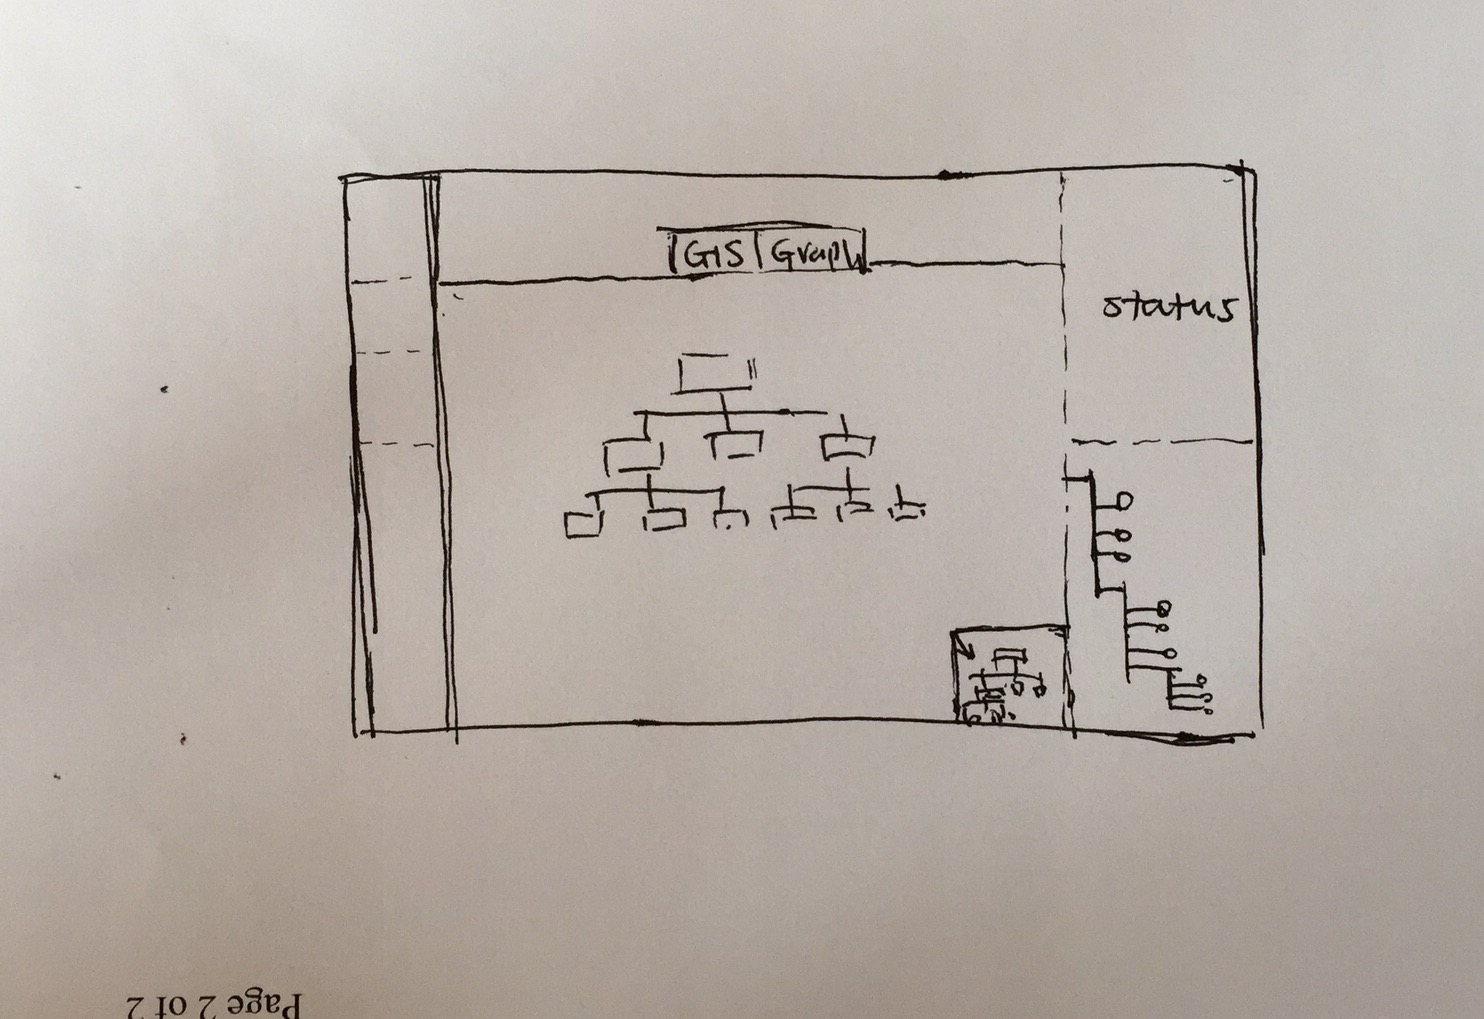 GIS Graph
status
Page 2 of 2